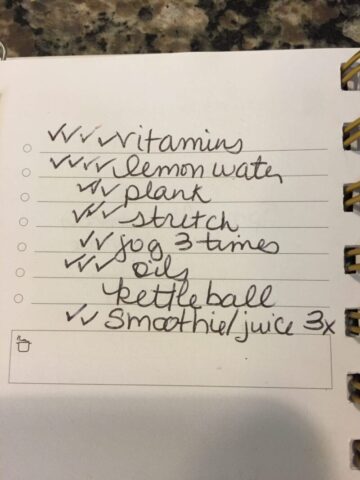 ✓✓✓✓vitamins
✓✓✓✓lemon water
✓✓plank
✓✓✓stretch
✓✓jog 3 times
✓✓✓oils
kettleball
✓✓Smoothie/juice 3x